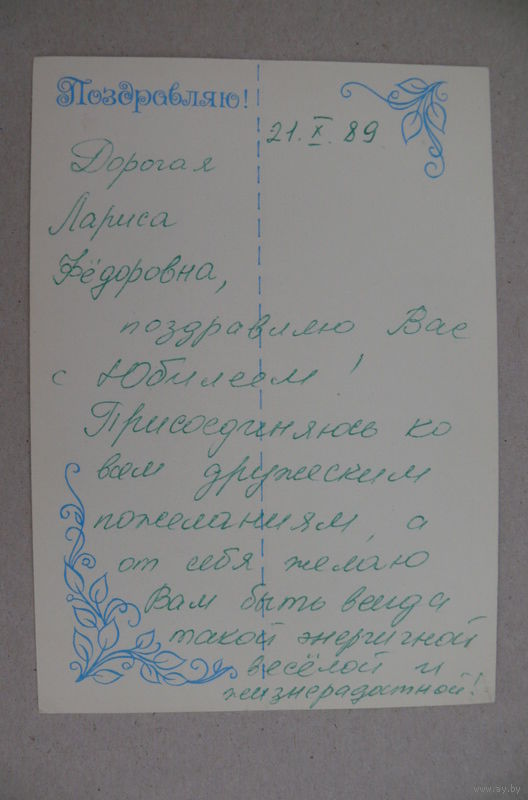 Поздравляю!
21. X. 89
Дорогая
Лариса
Фёдоровна,
поздравляю Вас
с Юбилеем!
Присоединяюсь ко
всем дружеским
пожеланиям, а
от себя желаю
Вам быть всегда
такой энергичной
весёлой и
жизнерадостной!
www.ay.by